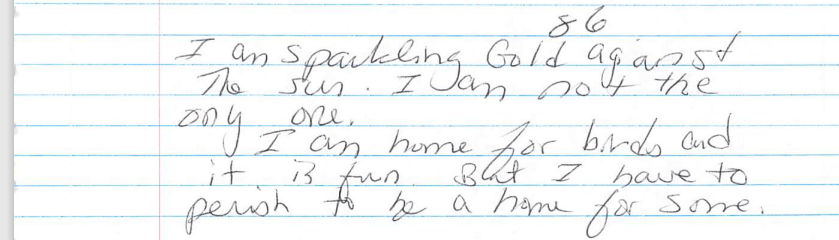 86
I am sparkling Gold against
The sun. I am not the
only one.
I am home for birds and
it is fun. But I have to
perish to be a home for some.